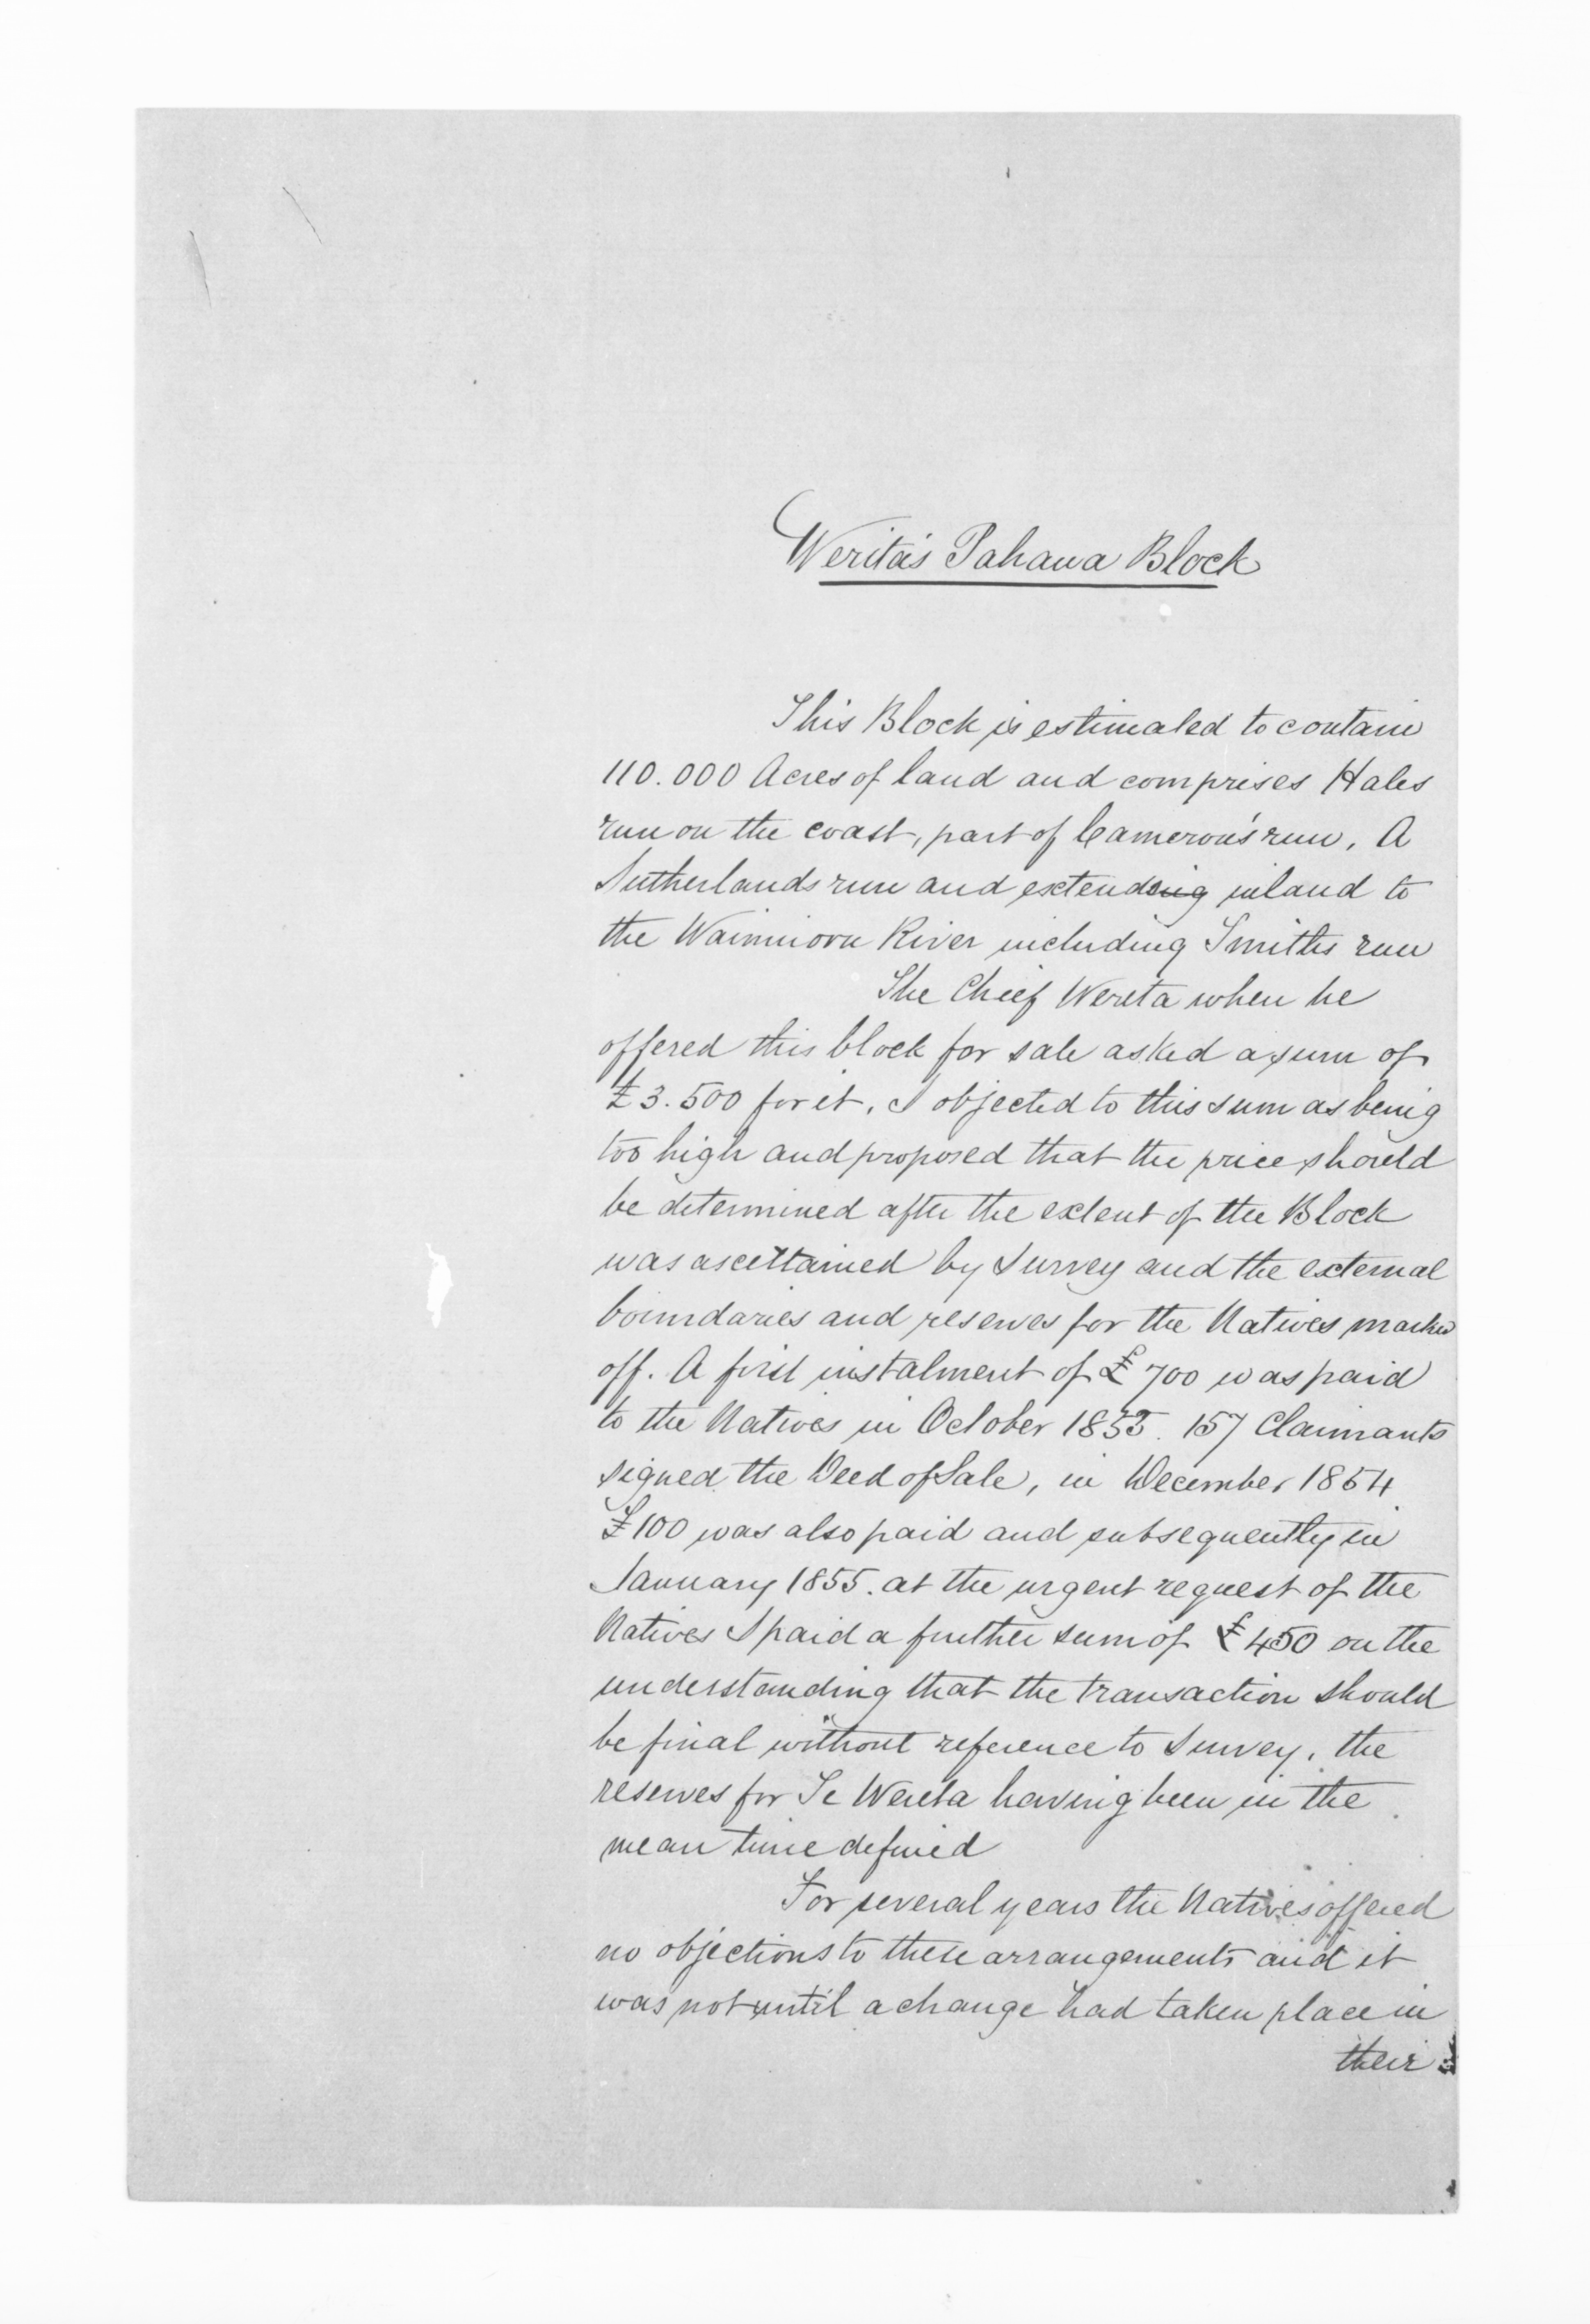 Werita's Pahaua Block
This Block is estimated to contain
110.000 Acres of land and comprises Hales
run on the coast, part of Cameron's run, A
Sutherlands run and extending inland to
the Wainuioru River including Smiths run
The Chief Wereta when he
offered this block for sale asked a sum of
£3.500 for it, I objected to this sum as being
too high and proposed that the price should
be determined after the extent of the Block
was ascertained by Survey and the external
boundaries and reserves for the Natives marked
off. A first instalment of £700 was paid
to the Natives in October 1853. 157 Claimants
signed the Deed of Sale, in December 1854
£100 was also paid and subsequently in
January 1855. at the urgent request of the
Natives I paid a further sum of £450 on the
understanding that the transaction should
be final without reference to Survey, the
reserves for Te Wereta having been in the
mean time defined
For several years the Natives offered
no objections to these arrangements and it
was not until a change had taken place in
their